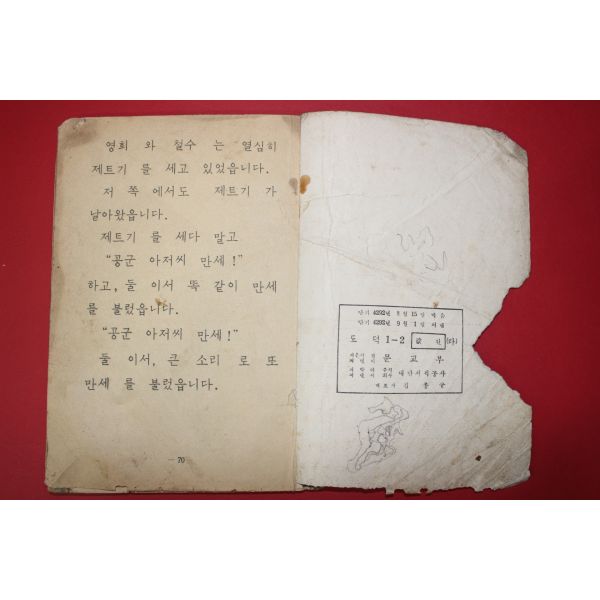 영희 와 철수 는 열심히
제트기 를 세고 있었읍니다.
저 쪽 에서도 제트기 가
날아왔읍니다.
제트기 를 세다 말고
“공군 아저씨 만세!”
하고, 둘 이서 똑 같이 만세
를 불렀읍니다.
“공군 아저씨 만세!”
둘 이서, 큰 소리 로 또
만세 를 불렀읍니다.
— 70
단기 4292년 8월 15일 박음
단기 4292년 9월 1일 펴냄
도 덕 1-2
문 교 부
대한서적공사
대표자 김